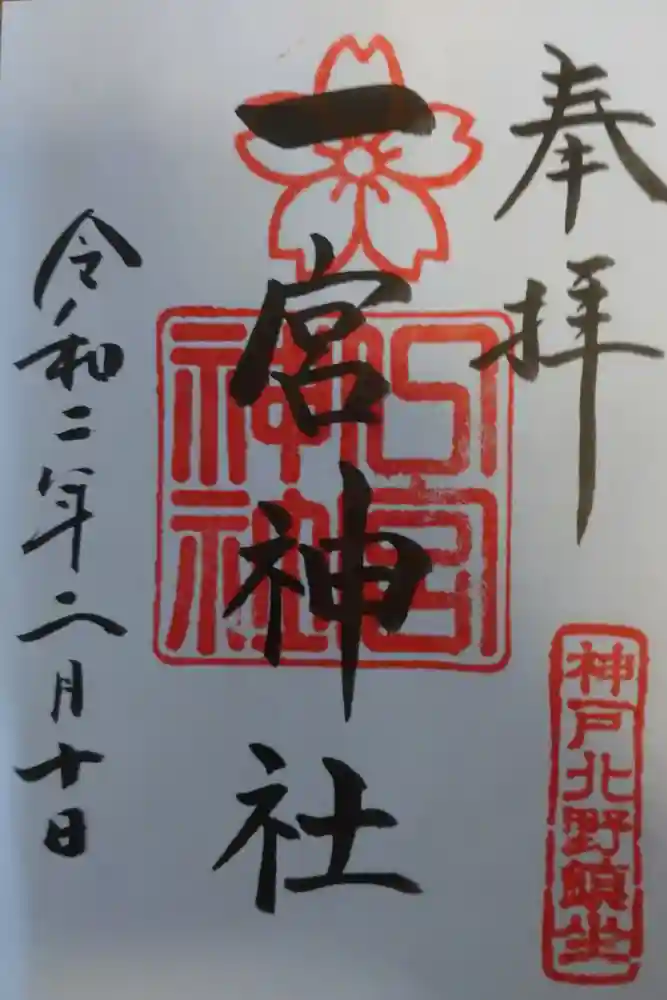 奉拝
神戸北野鎮坐
一宮神社
一宮神社
令和二年二月十日